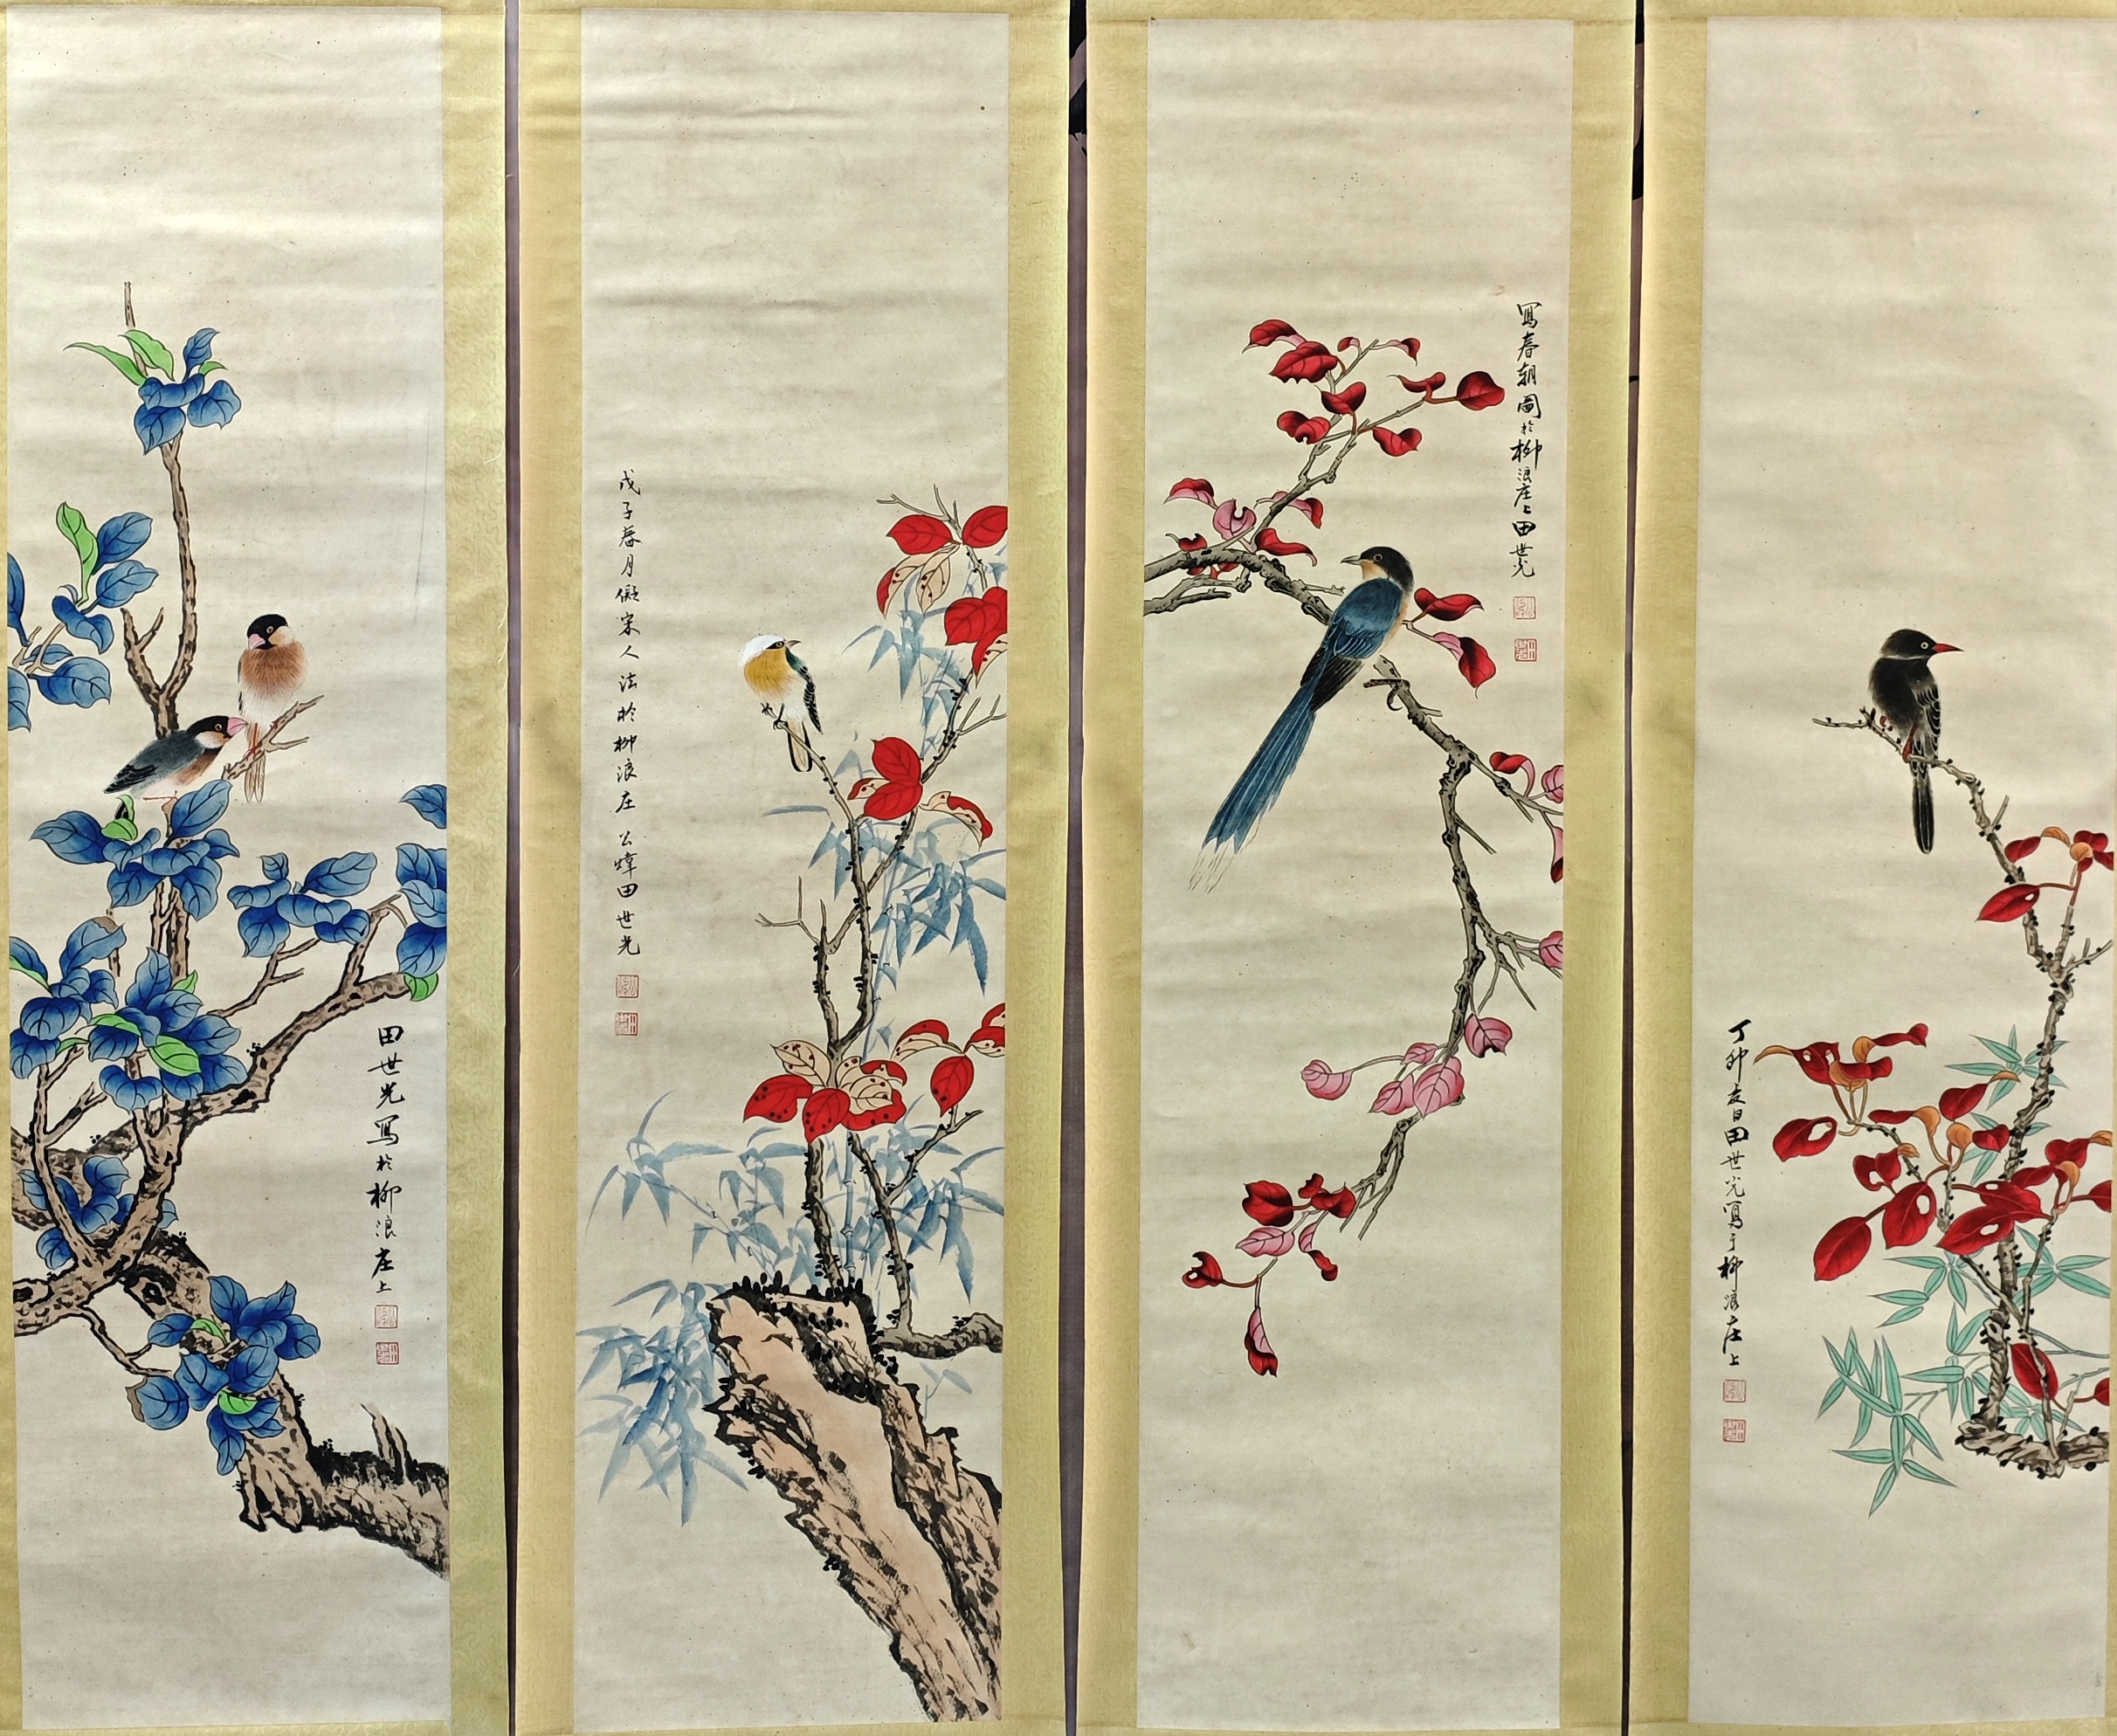 田世光寫於柳浪庄上
戊子春月儗宋人法於柳浪庄 公煒田世光
寫春朝圖於柳浪庄上田世光
丁卯春日田世光寫于柳浪庄上